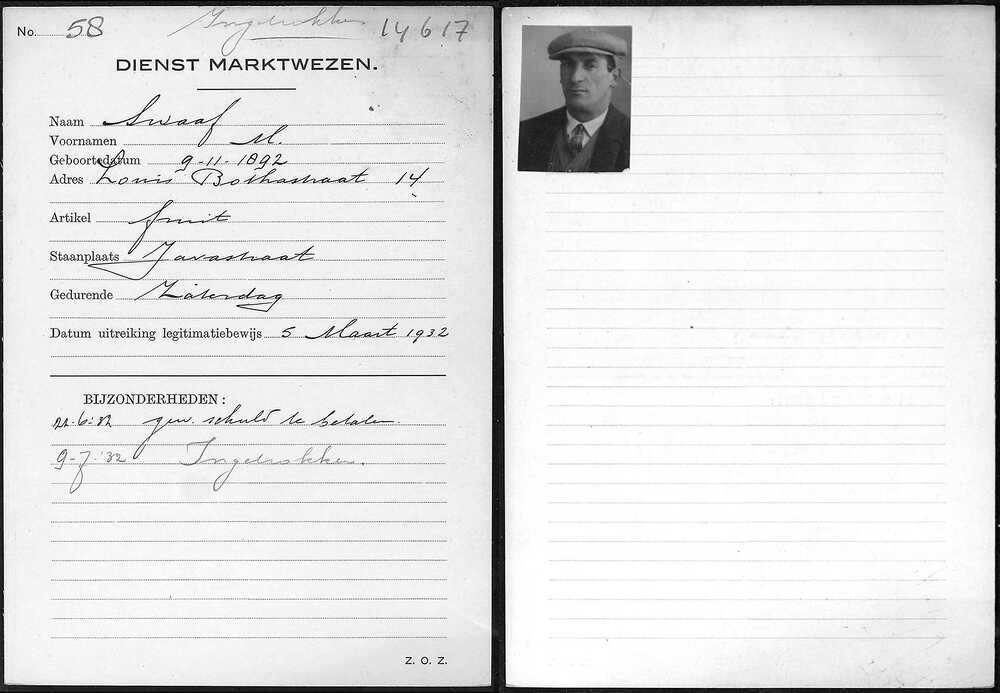 No. 58 Ingetrokken 14617
DIENST MARKTWEZEN.
Naam Swaaf
Voornamen M.
Geboortedatum 9-11-1892
Adres Louis Bothastraat 14
Artikel fruit
Staanplaats Javastraat
Gedurende Zaterdag
Datum uitreiking legitimatiebewijs 5 Maart 1932
BIJZONDERHEDEN:
21-6-32 gew. schuld te betalen.
9-7-'32 Ingetrokken.
Z. O. Z.